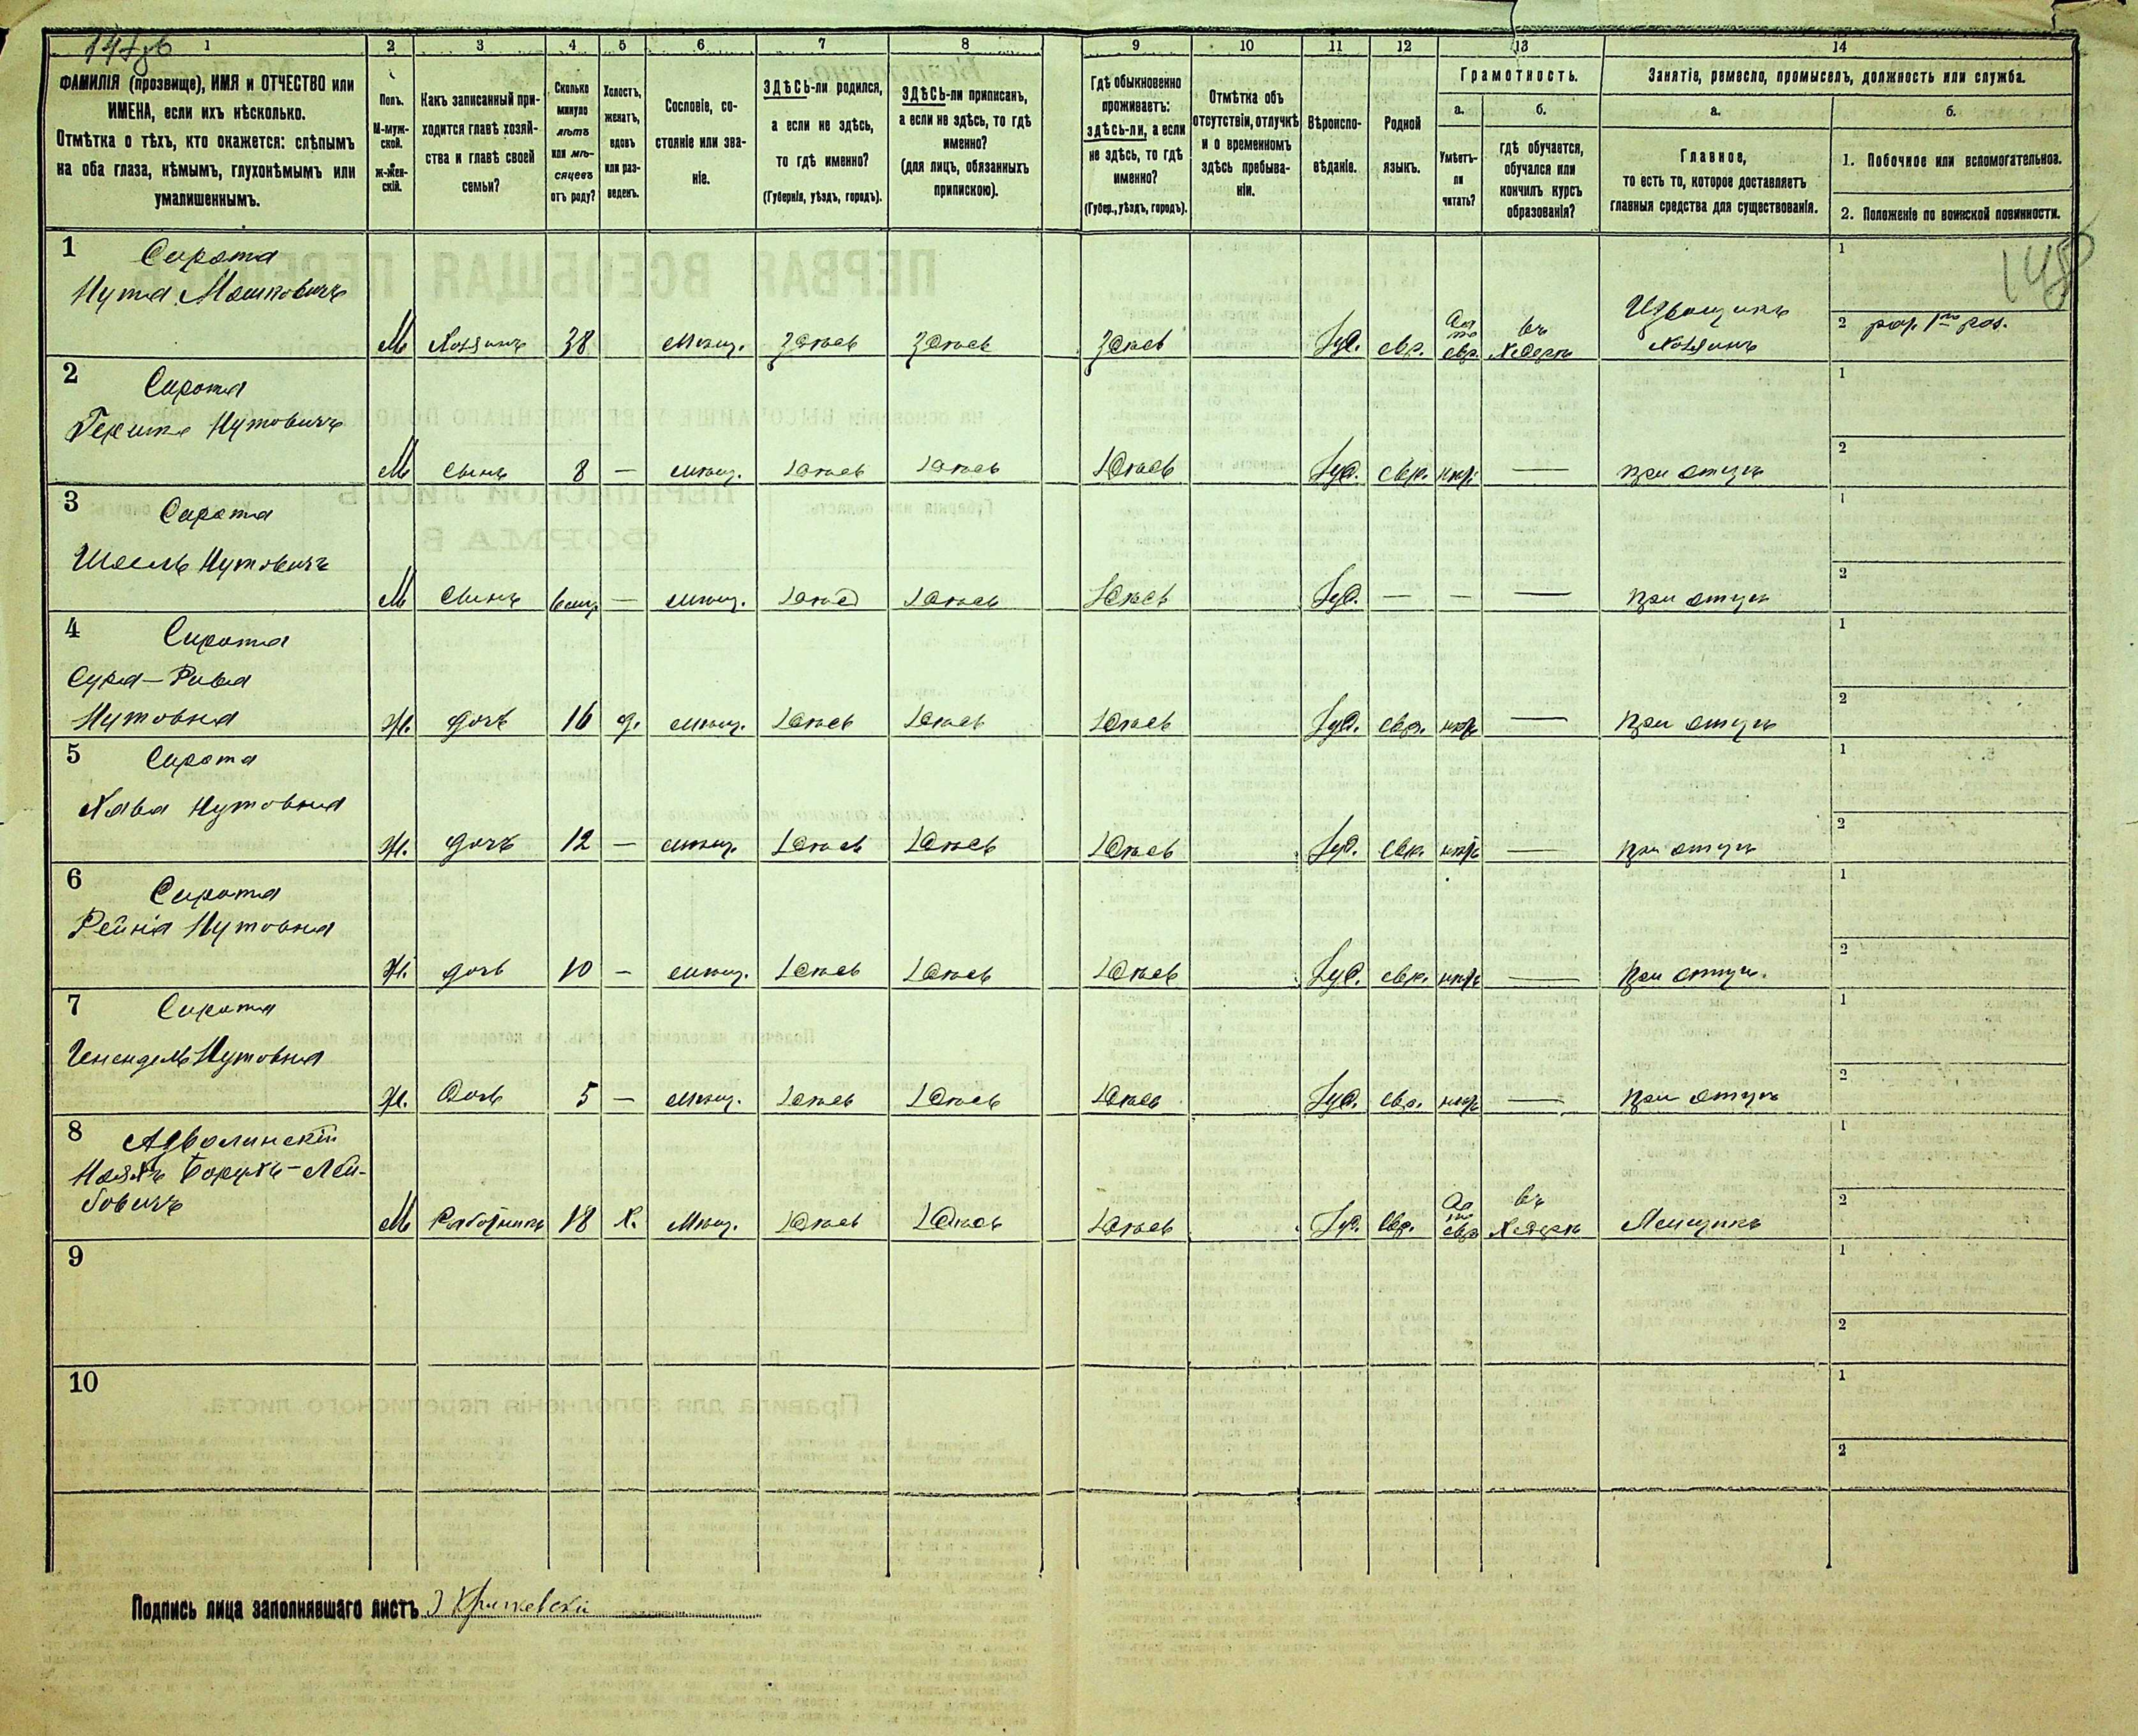 1 2 3 4 5 6 7 8 9 10 11 12 13 14
ФАМИЛІЯ (прозвище), ИМЯ и ОТЧЕСТВО или
ИМЕНА, если ихъ нѣсколько.
Отмѣтка о тѣхъ, кто окажется: слѣпымъ
на оба глаза, нѣмымъ, глухонѣмымъ или
умалишеннымъ.
Полъ.
М-муж-
ской.
ж-жен-
скій.
Какъ записанный при-
ходится главѣ хозяй-
ства и главѣ своей
семьи?
Сколько
минуло
лѣтъ
или мѣ-
сяцевъ
отъ роду?
Холостъ,
женатъ,
вдовъ
или раз-
веденъ.
Сословіе, со-
стояніе или зва-
ніе.
ЗДѢСЬ-ли родился,
а если не здѣсь,
то гдѣ именно?
(Губернія, уѣздъ, городъ).
ЗДѢСЬ-ли приписанъ,
а если не здѣсь, то гдѣ
именно?
(для лицъ, обязанныхъ
припискою).
Гдѣ обыкновенно
проживаетъ:
здѣсь-ли, а если
не здѣсь, то гдѣ
именно?
(Губер., уѣздъ, городъ).
Отмѣтка объ
отсутствіи, отлучкѣ
и о временномъ
здѣсь пребыва-
ніи.
Вѣроиспо-
вѣданіе.
Родной
языкъ.
Грамотность.
а.
Умѣетъ-
ли
читать?
б.
гдѣ обучается,
обучался или
кончилъ курсъ
образованія?
Занятіе, ремесло, промыселъ, должность или служба.
а.
Главное,
то есть то, которое доставляетъ
главныя средства для существованія.
б.
1. Побочное или вспомогательное.
2. Положеніе по воинской повинности.
148
1 Сирота
Нута Мошковичъ
М Хозяинъ 38 мѣщ. Здѣсь Здѣсь Здѣсь Іуд. евр. Да по евр. въ Хедерѣ Извощикъ хозяинъ
1
2
2 Сирота
Гершко Нутовичъ
М сынъ 8 — мѣщ. Здѣсь Здѣсь Здѣсь Іуд. евр. нѣтъ — при отцѣ
1
2
3 Сирота
Нутовичъ
М сынъ — мѣщ. Здѣсь Здѣсь Здѣсь Іуд. — — — при отцѣ
1
2
4 Сирота
Сура-Рива
Нутовна
Ж. дочь 16 д. мѣщ. Здѣсь Здѣсь Здѣсь Іуд. евр. нѣтъ — при отцѣ
1
2
5 Сирота
Хава Нутовна
Ж. дочь 12 — мѣщ. Здѣсь Здѣсь Здѣсь Іуд. евр. нѣтъ — при отцѣ
1
2
6 Сирота
Рейня Нутовна
Ж. дочь 10 — мѣщ. Здѣсь Здѣсь Здѣсь Іуд. евр. нѣтъ — при отцѣ
1
2
7 Сирота
Нутовна
Ж. Дочь 5 — мѣщ. Здѣсь Здѣсь Здѣсь Іуд. евр. нѣтъ — при отцѣ
1
2
8
Борухъ-Лей-
бовичъ
М Работникъ 18 Х. Мѣщ. Здѣсь Здѣсь Здѣсь Іуд. Евр. Да по евр. въ Хедерѣ
1
2
9
1
2
10
1
2
Подпись лица заполнявшаго листъ